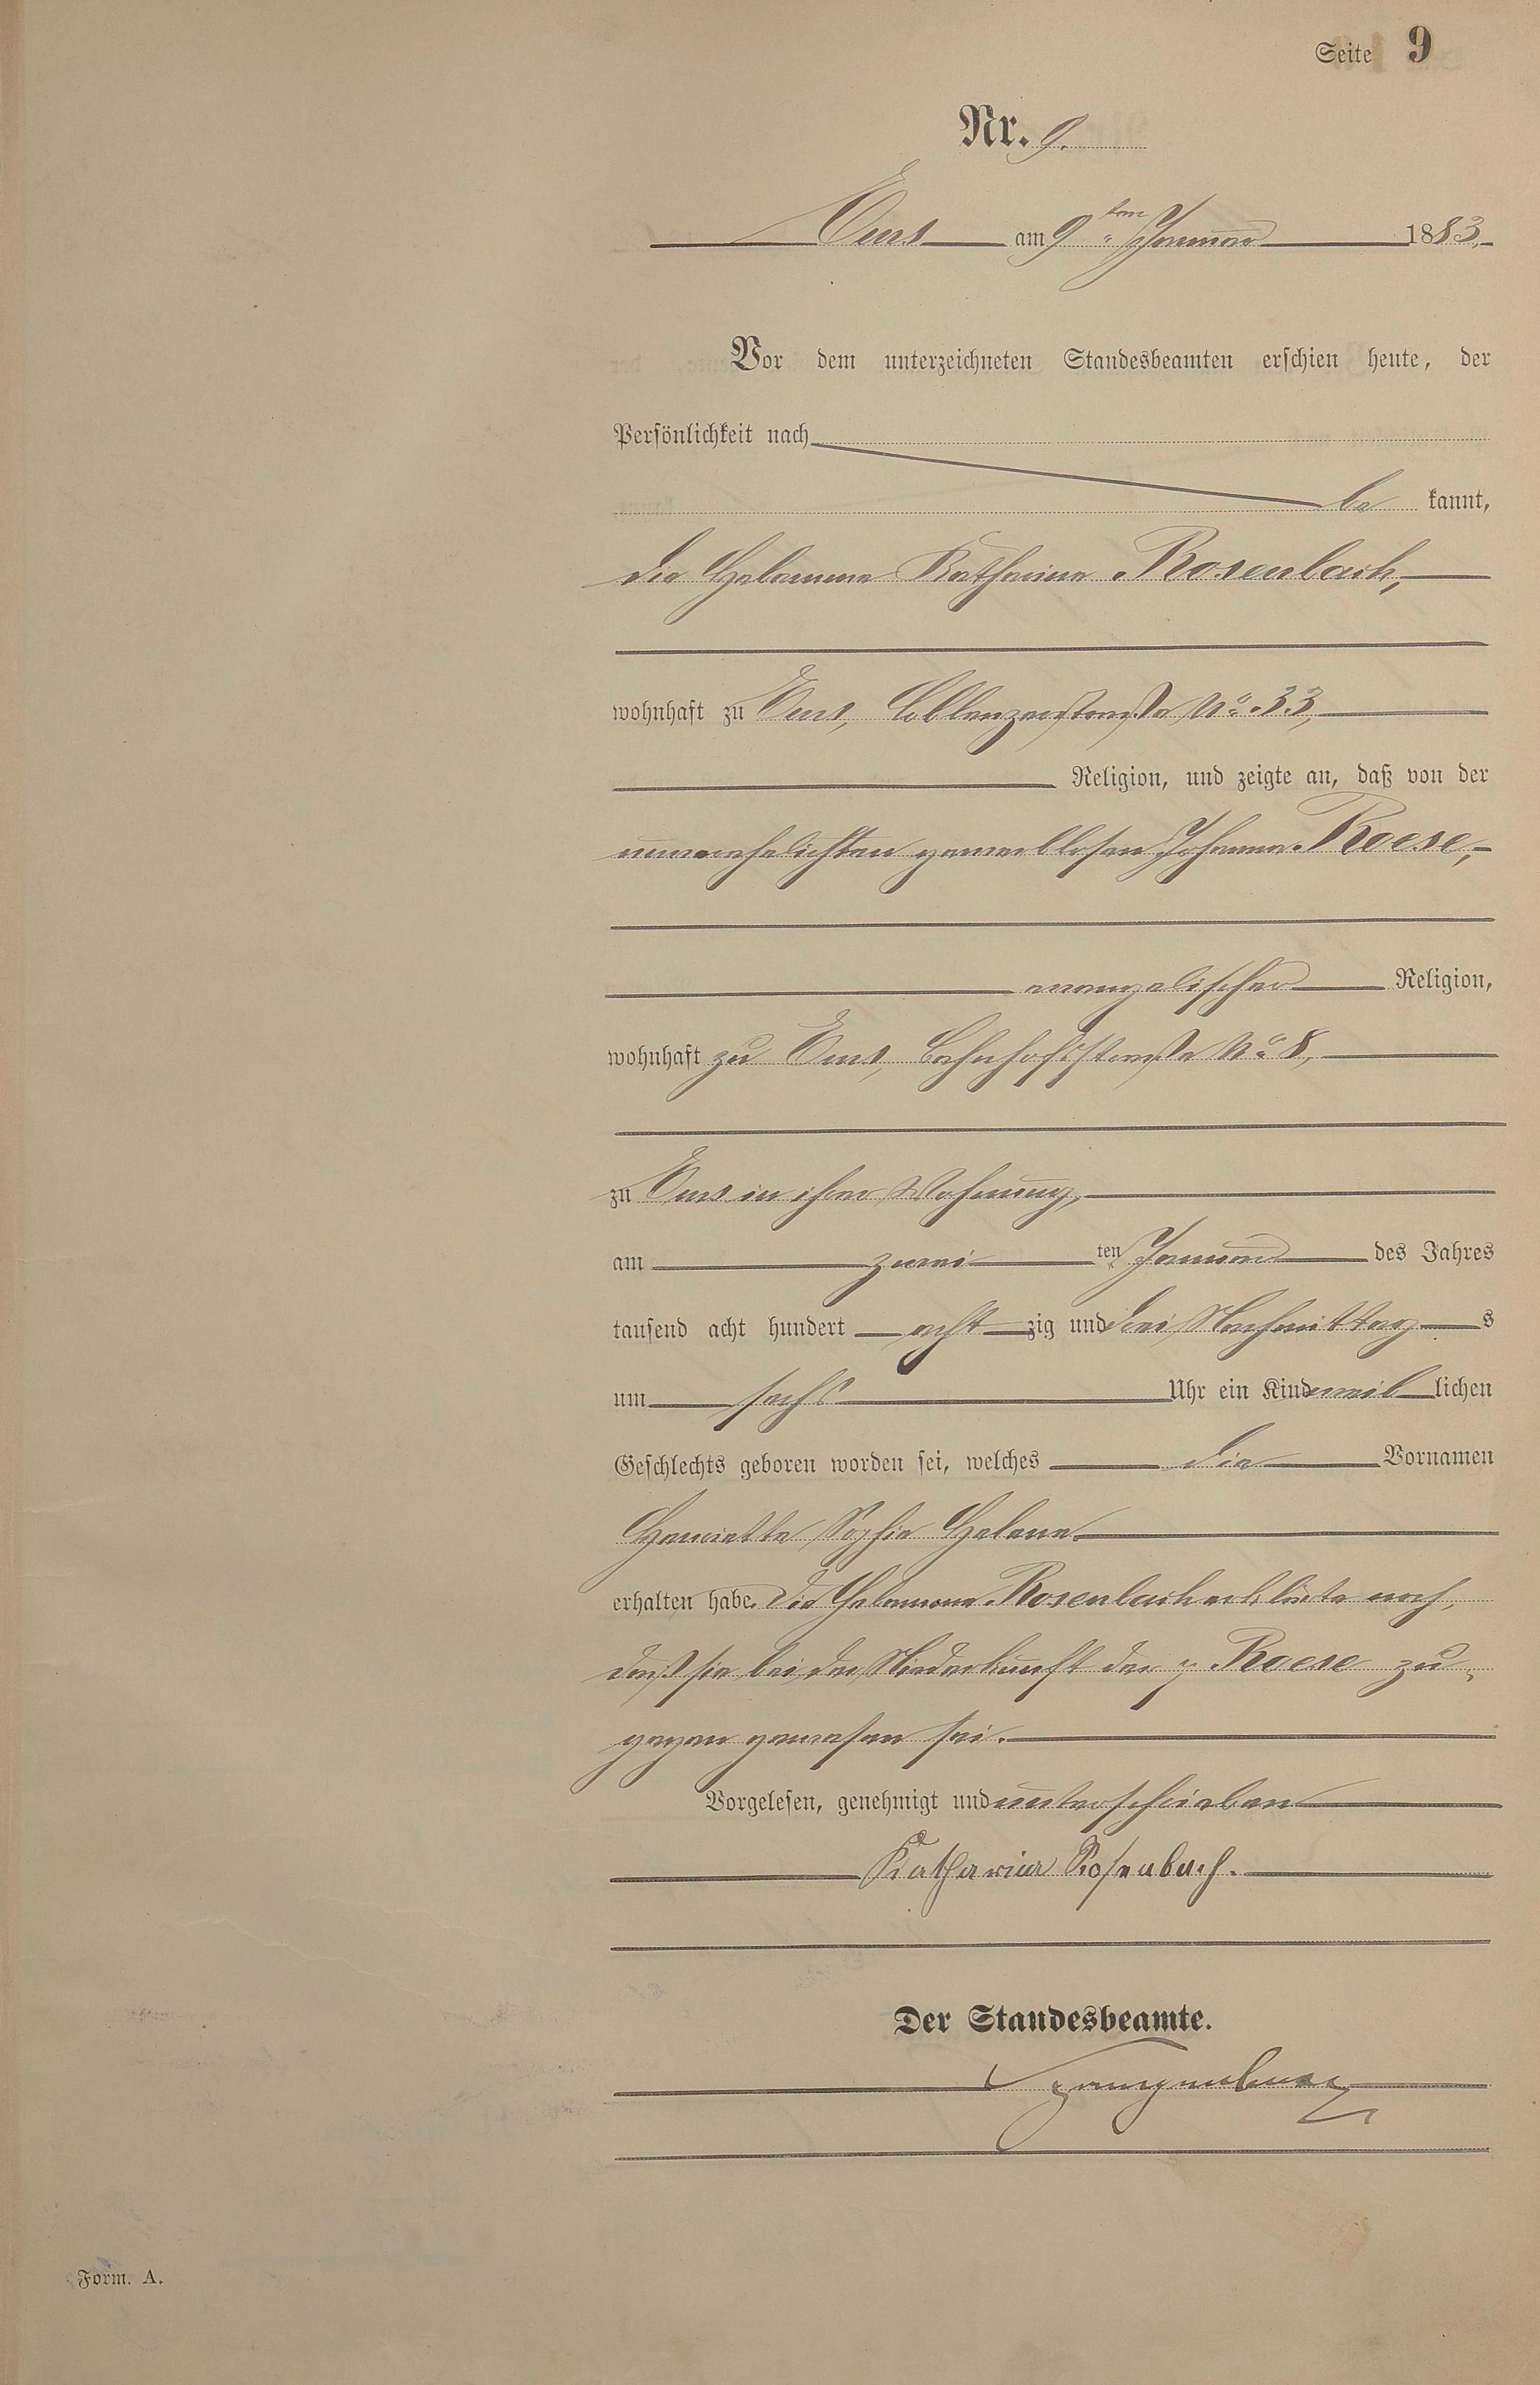 Seite 9
Nr. 9.
Ems am 9ten Januar 1883.
Vor dem unterzeichneten Standesbeamten erschien heute, der
Persönlichkeit nach
be kannt,
die Hebamme Katharina Rosenbach,
wohnhaft zu Ems, Coblenzerstraße No. 33,
Religion, und zeigte an, daß von der
unverehelichten gewerblosen Johanna Roese,
evangelischer Religion,
wohnhaft zu Ems, Bahnhofstraße No. 8,
zu Ems in ihrer Wohnung,
am zwei ten Januar des Jahres
tausend acht hundert acht zig und drei Nachmittag s
um sechs Uhr ein Kind weib lichen
Geschlechts geboren worden sei, welches die Vornamen
Henriette Sophie Helene
erhalten habe. Die Hebamme Rosenbach erklärte noch,
daß sie bei der Niederkunft der p Roese zu-
gegen gewesen sei.
Vorgelesen, genehmigt und unterschrieben
Katharina Rosenbach.
Der Standesbeamte.
Form. A.